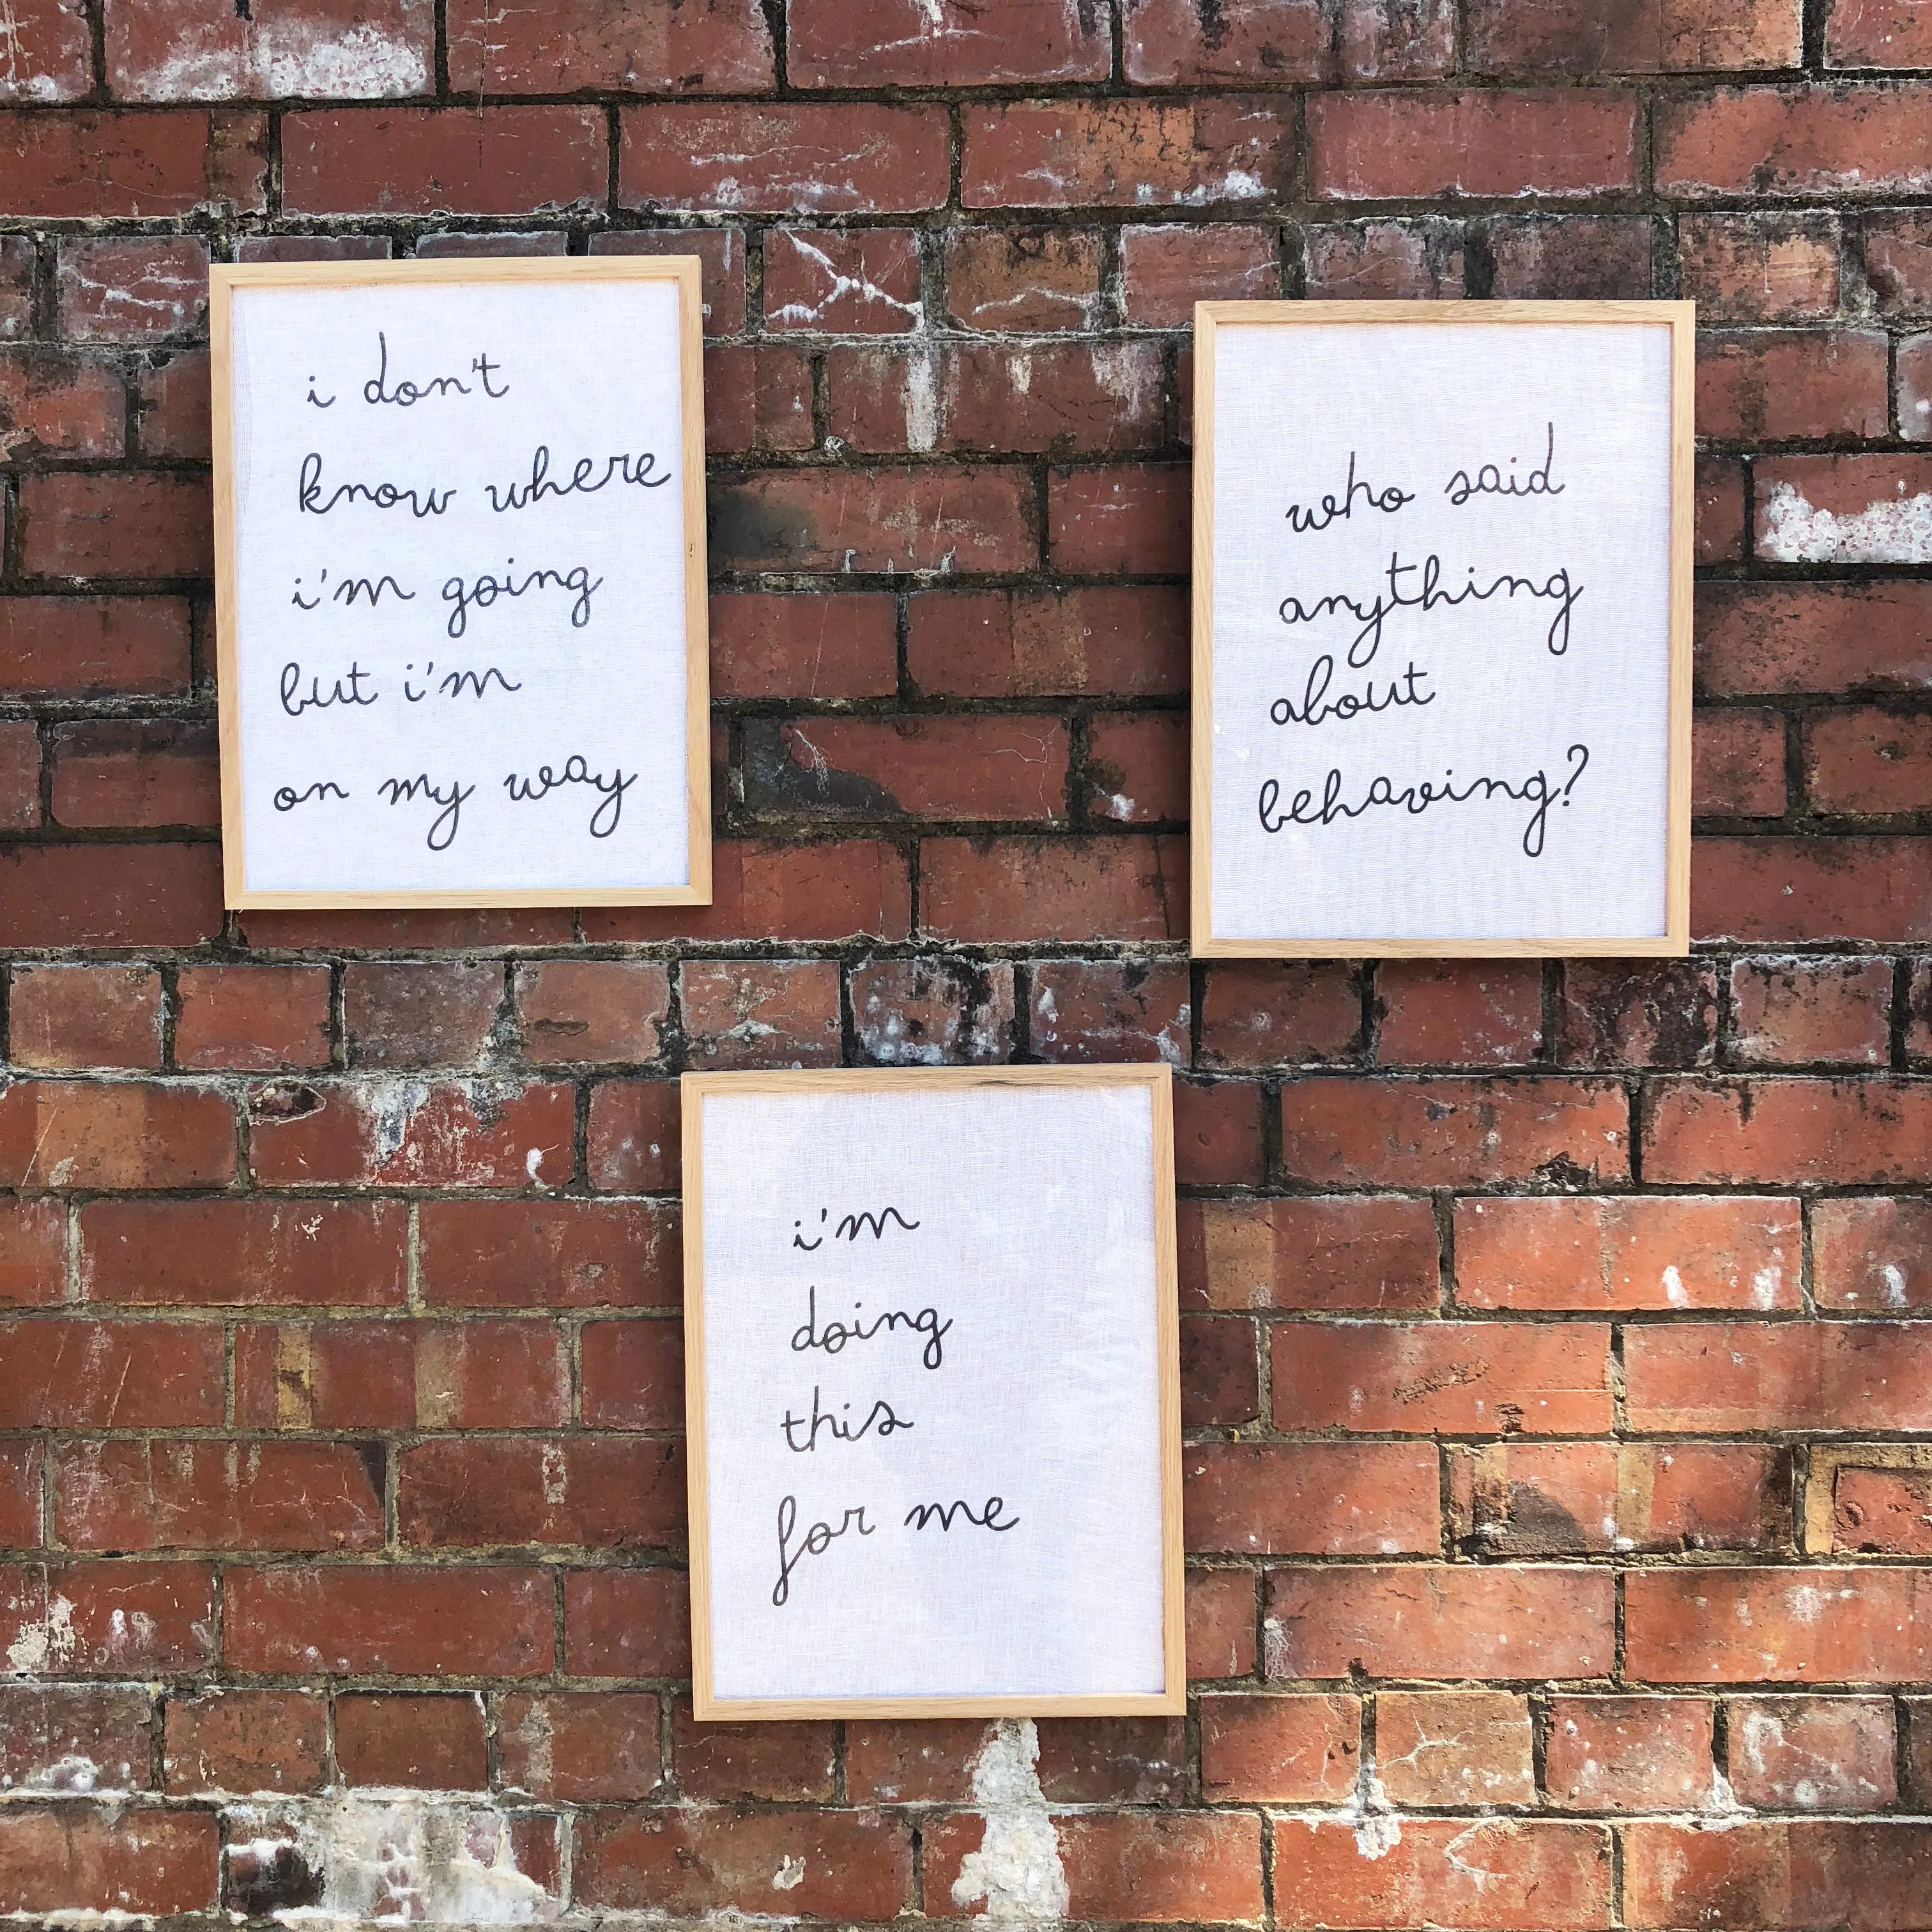 i don't
know where
i'm going
but i'm
on my way
who said
anything
about
behaving?
i'm
doing
this
for me